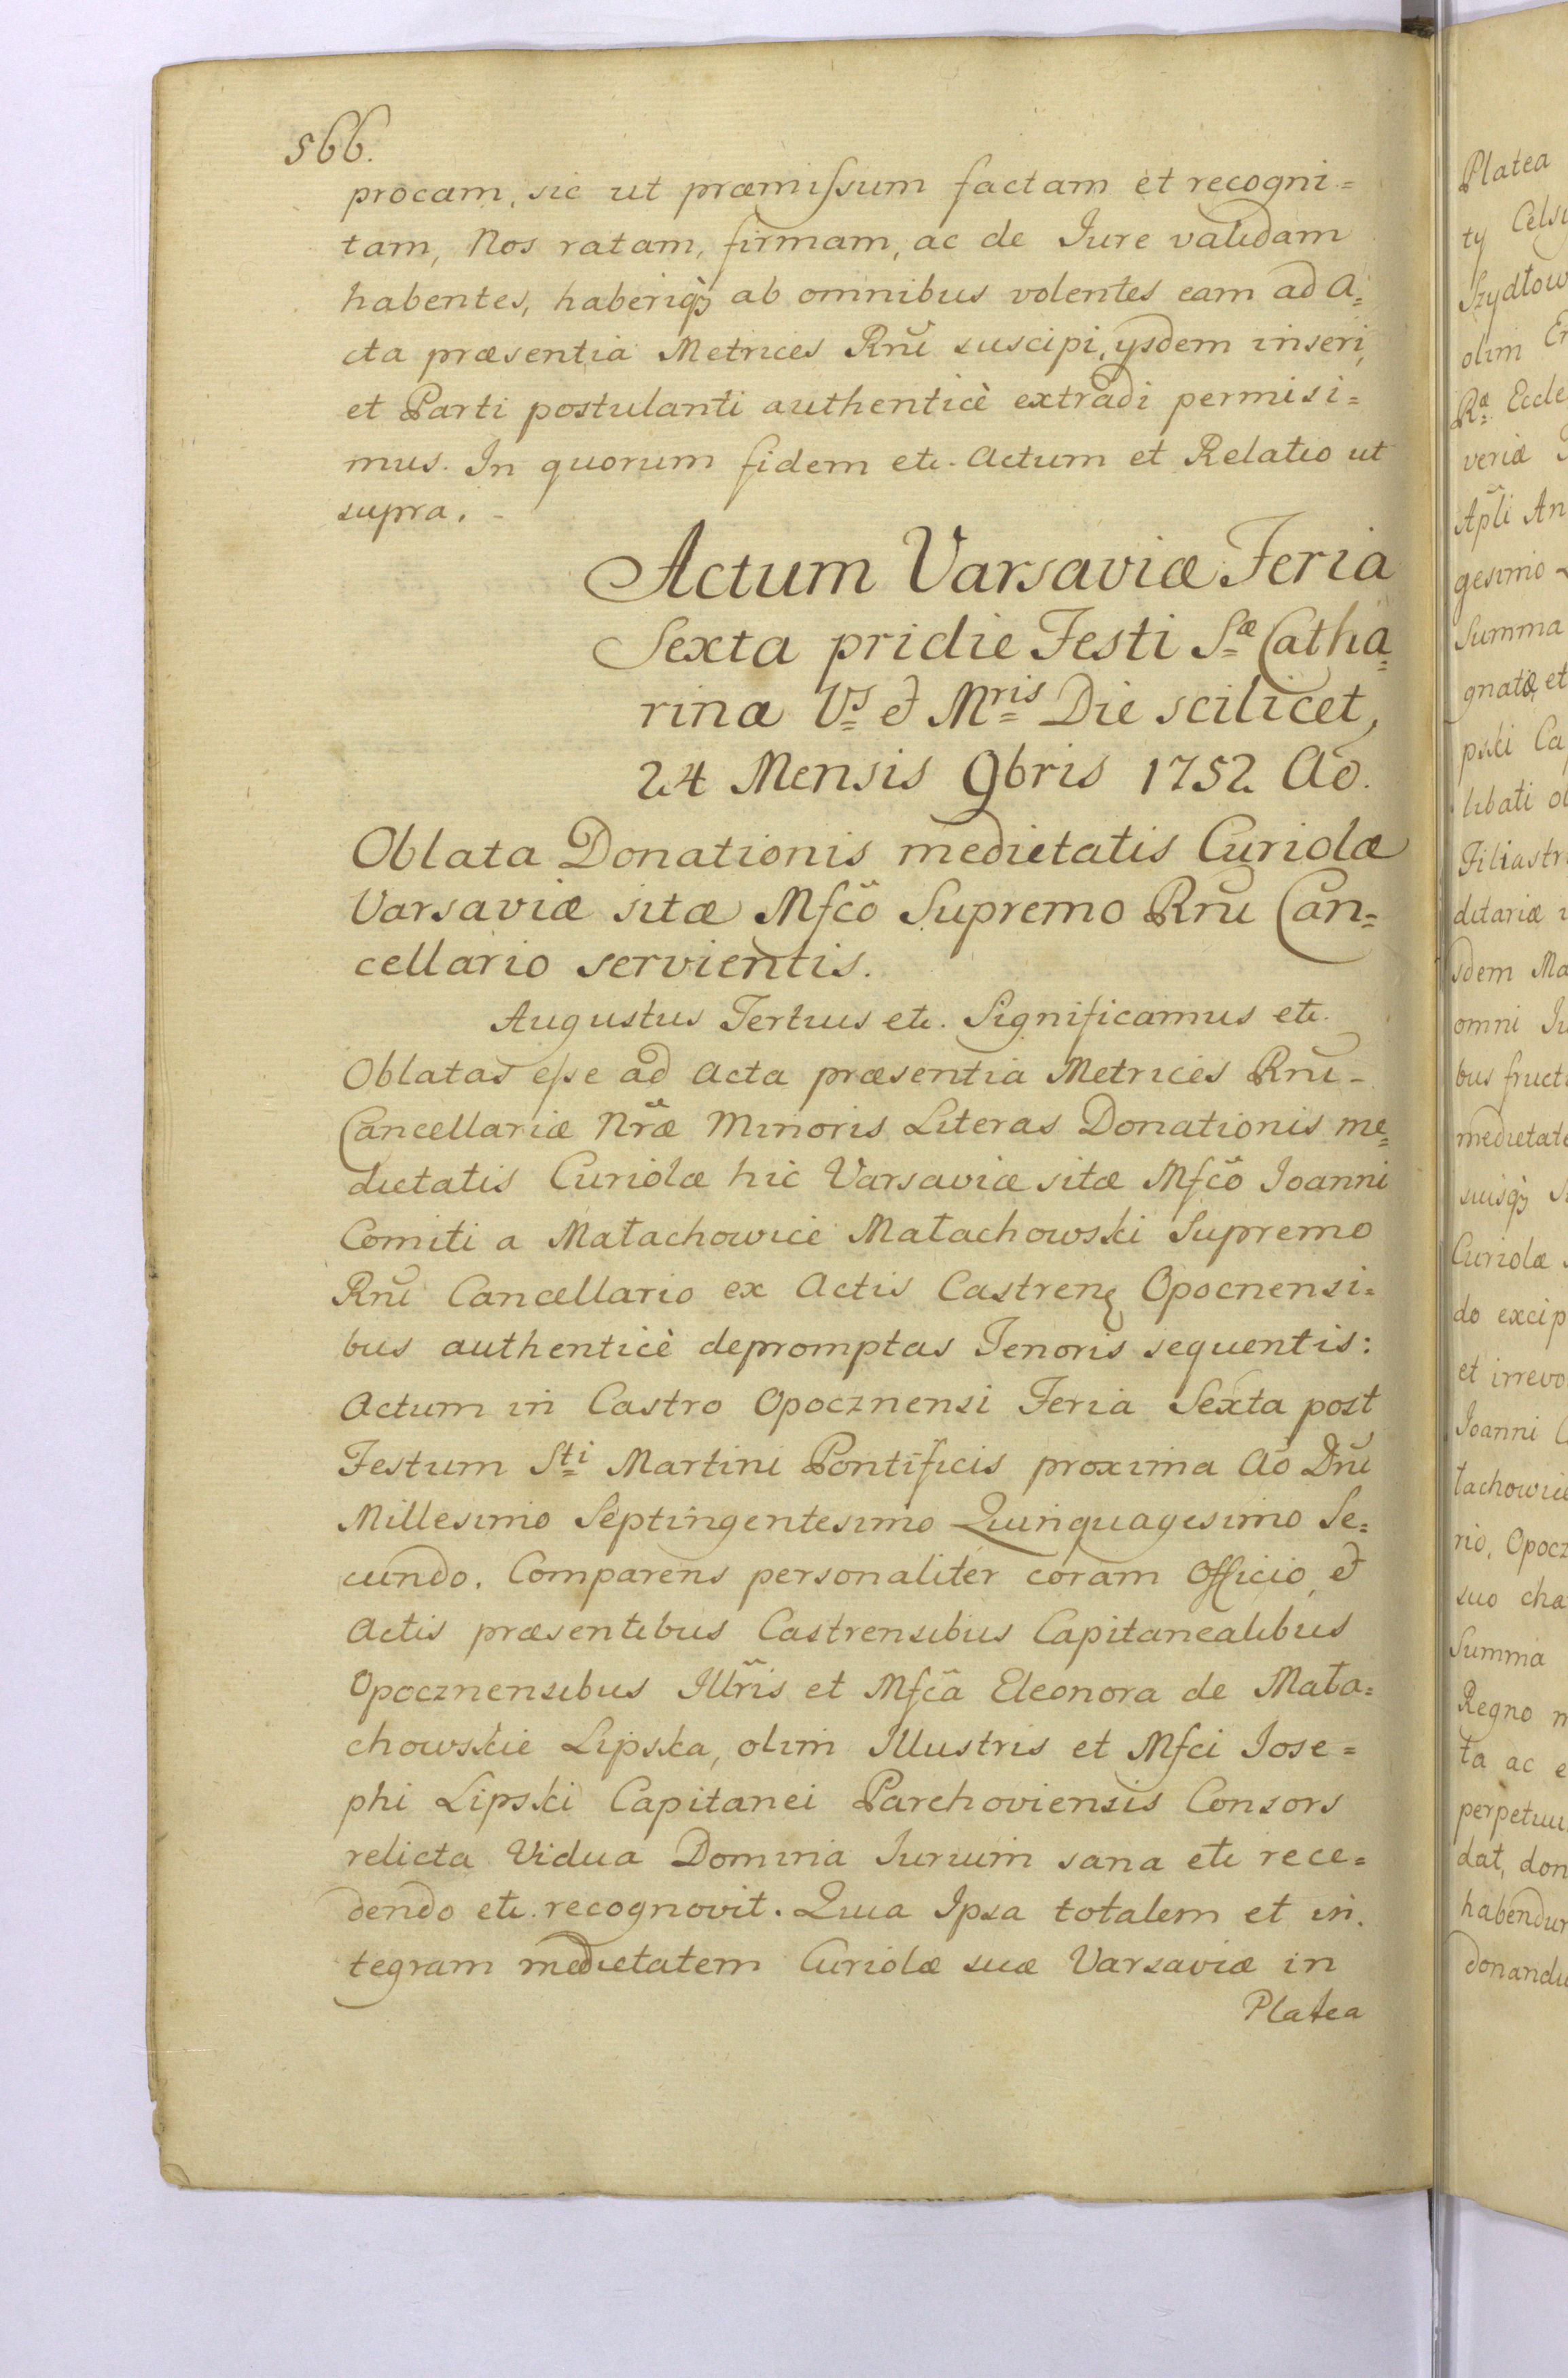 566.
procam, sic ut præmiſsum factam et recogni=
tam, Nos ratam, firmam, ac de Jure validam
habentes, haberiqꝫ ab omnibus volentes eam ad A=
cta præsentia Metrices Rnũ suscipi, ysdem inseri,
et Parti postulanti authenticè extradi permisi=
mus. In quorum fidem etc. Actum et Relatio ut
supra. -
Actum Varsaviæ Feria
Sexta pridie Festi Sæ Catha=
rinæ Vs et Mris Die scilicet,
24 Mensis 9bris 1752 Aõ.
Oblata Donationis medietatis Curiolæ
Varsaviæ sitæ Mfcõ Supremo Rnũ Can=
cellario servientis.
Augustus Tertius etc. Significamus etc.
Oblatas eſse ad Acta præsentia Metrices Rnũ -
Cancellariæ Nr̃æ Minoris Literas Donationis me=
dietatis Curiolæ hic Varsaviæ sitæ Mfcõ Joanni
Comiti a Małachowice Małachowski Supremo
Rnũ Cancellario ex Actis Castrenꝫ Opocnensi=
bus authenticè depromptas Tenoris sequentis:
Actum in Castro Opocznensi Feria Sexta post
Festum Sti Martini Pontificis proxima Aõ Dnĩ
Millesimo Septingentesimo Quinquagesimo Se=
cundo. Comparens personaliter coram Officio, et
Actis præsentibus Castrensibus Capitanealibus
Opocznensibus Illr̃is et Mfcã Eleonora de Mała=
chowskie Lipska, olim Illustris et Mfci Jose=
phi Lipski Capitanei Parchoviensis Consors
relicta Vidua Domina Jurium sana etc rece=
dendo etc. recognovit. Quia Ipsa totalem et in=
tegram medietatem Curiolæ suæ Varsaviæ in
Platea
Platea
ty Cels
Szydłow
olim
Ræ Eccle
veriæ
Apl̃i An
gesimo
Summa
gnatæ, et
pski Ca
libati ol
Filiastr
ditariæ
sdem Ma
omni Ju
bus fruct
medietate
suisqꝫ
Curiolæ
do excip
et irrevo
Joanni C
łachowice
rio, Opocz
suo cha
Summa
Regno
ta ac e
perpetuu
dat, don
habendum
donandu